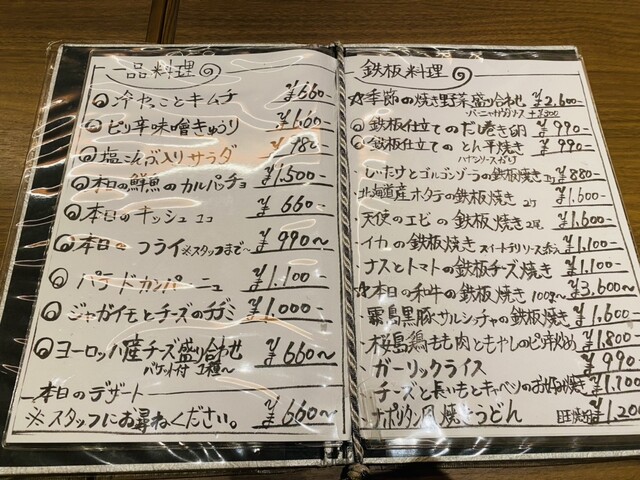 一品料理
冷やっことキムチ ¥660-
ピリ辛味噌きゅうり ¥660-
塩こんぶ入りサラダ ¥780-
本日の鮮魚のカルパッチョ ¥1,500-
本日のキッシュ 1コ ¥660-
本日の フライ ※スタッフまで~ ¥990~
パテ・ド・カンパーニュ ¥1,100-
ジャガイモとチーズのチヂミ ¥1,000-
ヨーロッパ産チーズ盛り合わせ ¥660~
バケット付 1種~
本日のデザート
※スタッフにお尋ねください。 ¥660~
鉄板料理
☆季節の焼き野菜盛り合わせ ¥2,600-
バーニャカウダソース +¥300
鉄板仕立てのだし巻き卵 ¥990-
鉄板仕立てのとん平焼き ¥990-
・しいたけとゴルゴンゾーラの鉄板焼き ¥880-
・北海道産ホタテの鉄板焼き 2ケ ¥1,600-
・天使のエビの鉄板焼き 2尾 ¥1,600-
・イカの鉄板焼き スイートチリソース添え ¥1,100-
・ナスとトマトの鉄板チーズ焼き ¥1,100-
☆本日の和牛の鉄板焼き 100g~ ¥3,600~
・霧島黒豚サルシッチャの鉄板焼き ¥1,600-
・桜島鶏もも肉ともやしのピリ辛炒め ¥1,800-
・ガーリックライス ¥990
・チーズと長いもとキャベツのお好み焼き ¥1,100
・ナポリタン風焼きうどん ¥1,20